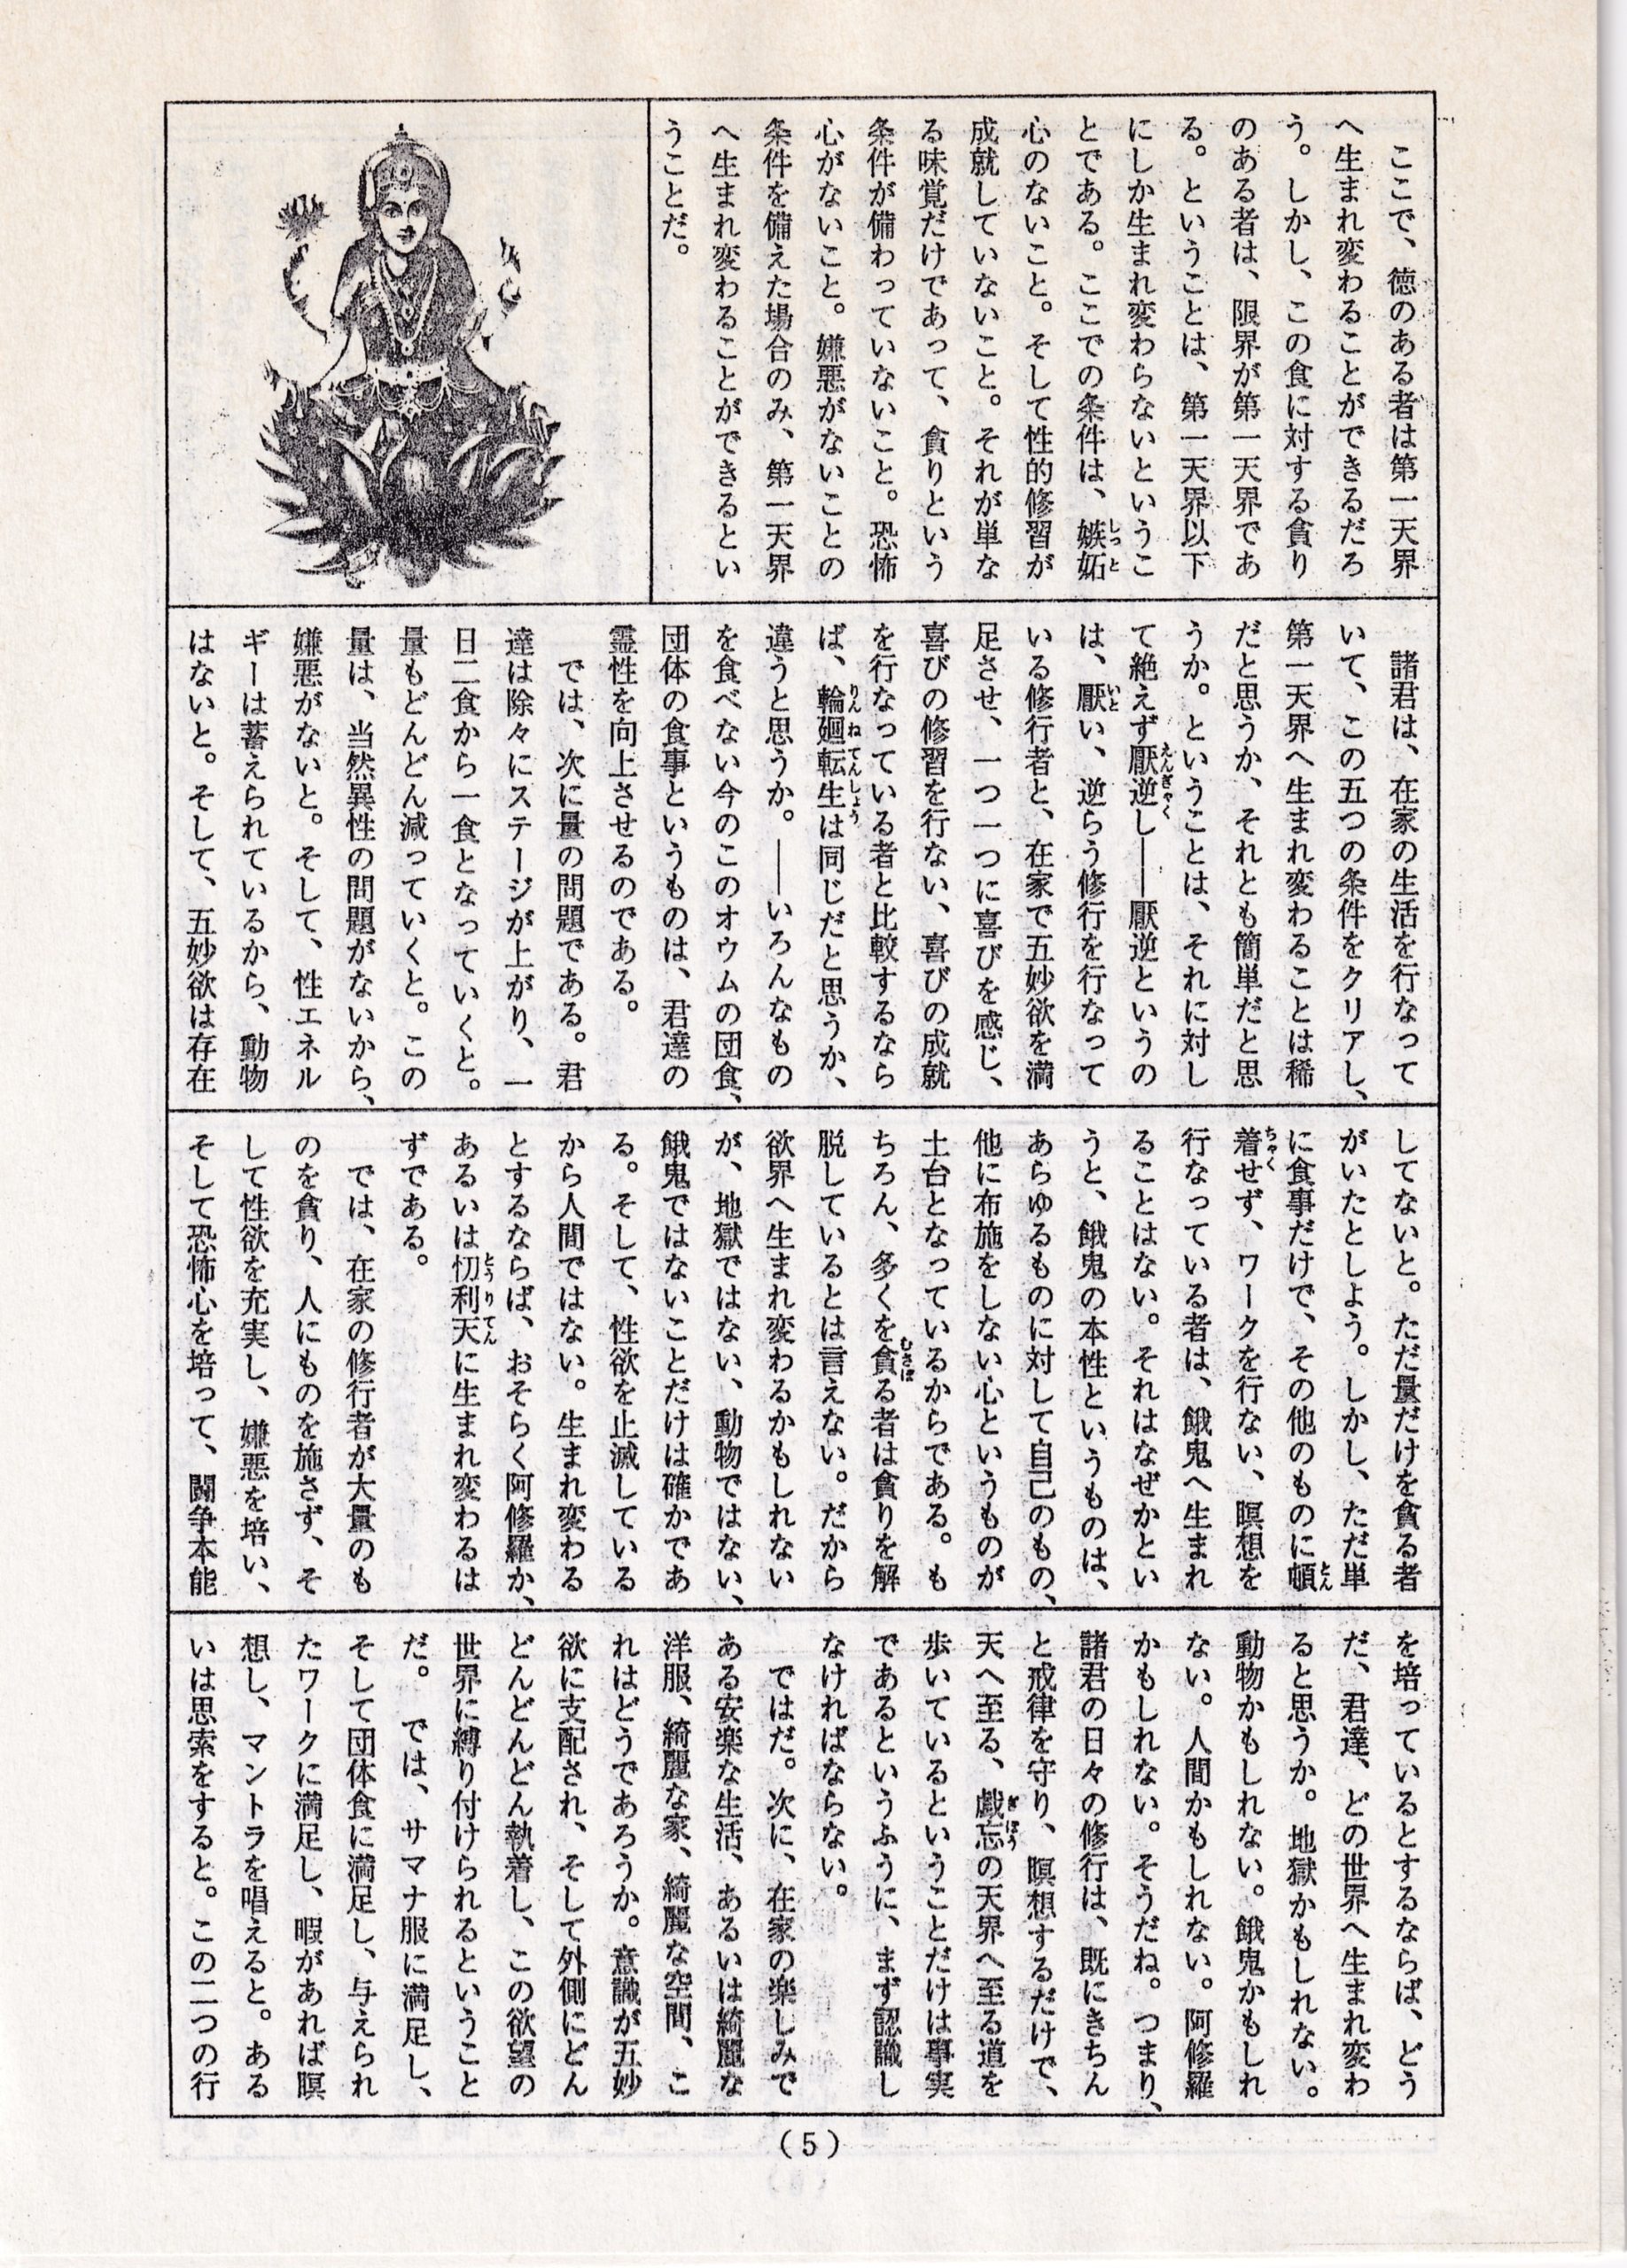 ここで、徳のある者は第一天界
へ生まれ変わることができるだろ
う。しかし、この食に対する貪り
のある者は、限界が第一天界であ
る。ということは、第一天界以下
にしか生まれ変わらないというこ
とである。ここでの条件は、嫉妬
心のないこと。そして性的修習が
成就していないこと。それが単な
る味覚だけであって、貪りという
条件が備わっていないこと。恐怖
心がないこと。嫌悪がないことの
条件を備えた場合のみ、第一天界
へ生まれ変わることができるとい
うことだ。
諸君は、在家の生活を行なって
いて、この五つの条件をクリアし、
第一天界へ生まれ変わることは稀
だと思うか、それとも簡単だと思
うか。ということは、それに対し
て絶えず厭逆し――厭逆というの
は、厭い、逆らう修行を行なって
いる修行者と、在家で五妙欲を満
足させ、一つ一つに喜びを感じ、
喜びの修習を行ない、喜びの成就
を行なっている者と比較するなら
ば、輪廻転生は同じだと思うか、
違うと思うか。――いろんなもの
を食べない今のこのオウムの団食、
団体の食事というものは、君達の
霊性を向上させるのである。
では、次に量の問題である。君
達は除々にステージが上がり、一
日二食から一食となっていくと。
量もどんどん減っていくと。この
量は、当然異性の問題がないから、
嫌悪がないと。そして、性エネル
ギーは蓄えられているから、動物
はないと。そして、五妙欲は存在
してないと。ただ量だけを貪る者
がいたとしよう。しかし、ただ単
に食事だけで、その他のものに頓
着せず、ワークを行ない、瞑想を
行なっている者は、餓鬼へ生まれ
ることはない。それはなぜかとい
うと、餓鬼の本性というものは、
あらゆるものに対して自己のもの、
他に布施をしない心というものが
土台となっているからである。も
ちろん、多くを貪る者は貪りを解
脱しているとは言えない。だから
欲界へ生まれ変わるかもしれない
が、地獄ではない、動物ではない、
餓鬼ではないことだけは確かであ
る。そして、性欲を止滅している
から人間ではない。生まれ変わる
とするならば、おそらく阿修羅か、
あるいは忉利天に生まれ変わるは
ずである。
では、在家の修行者が大量のも
のを貪り、人にものを施さず、そ
して性欲を充実し、嫌悪を培い、
そして恐怖心を培って、闘争本能
を培っているとするならば、どう
だ、君達、どの世界へ生まれ変わ
ると思うか。地獄かもしれない。
動物かもしれない。餓鬼かもしれ
ない。人間かもしれない。阿修羅
かもしれない。そうだね。つまり、
諸君の日々の修行は、既にきちん
と戒律を守り、瞑想するだけで、
天へ至る、戯忘の天界へ至る道を
歩いているということだけは事実
であるというふうに、まず認識し
なければならない。
ではだ。次に、在家の楽しみで
ある安楽な生活、あるいは綺麗な
洋服、綺麗な家、綺麗な空間、こ
れはどうであろうか。意識が五妙
欲に支配され、そして外側にどん
どんどんどん執着し、この欲望の
世界に縛り付けられるということ
だ。では、サマナ服に満足し、
そして団体食に満足し、与えられ
たワークに満足し、暇があれば瞑
想し、マントラを唱えると。ある
いは思索をすると。この二つの行
(5)